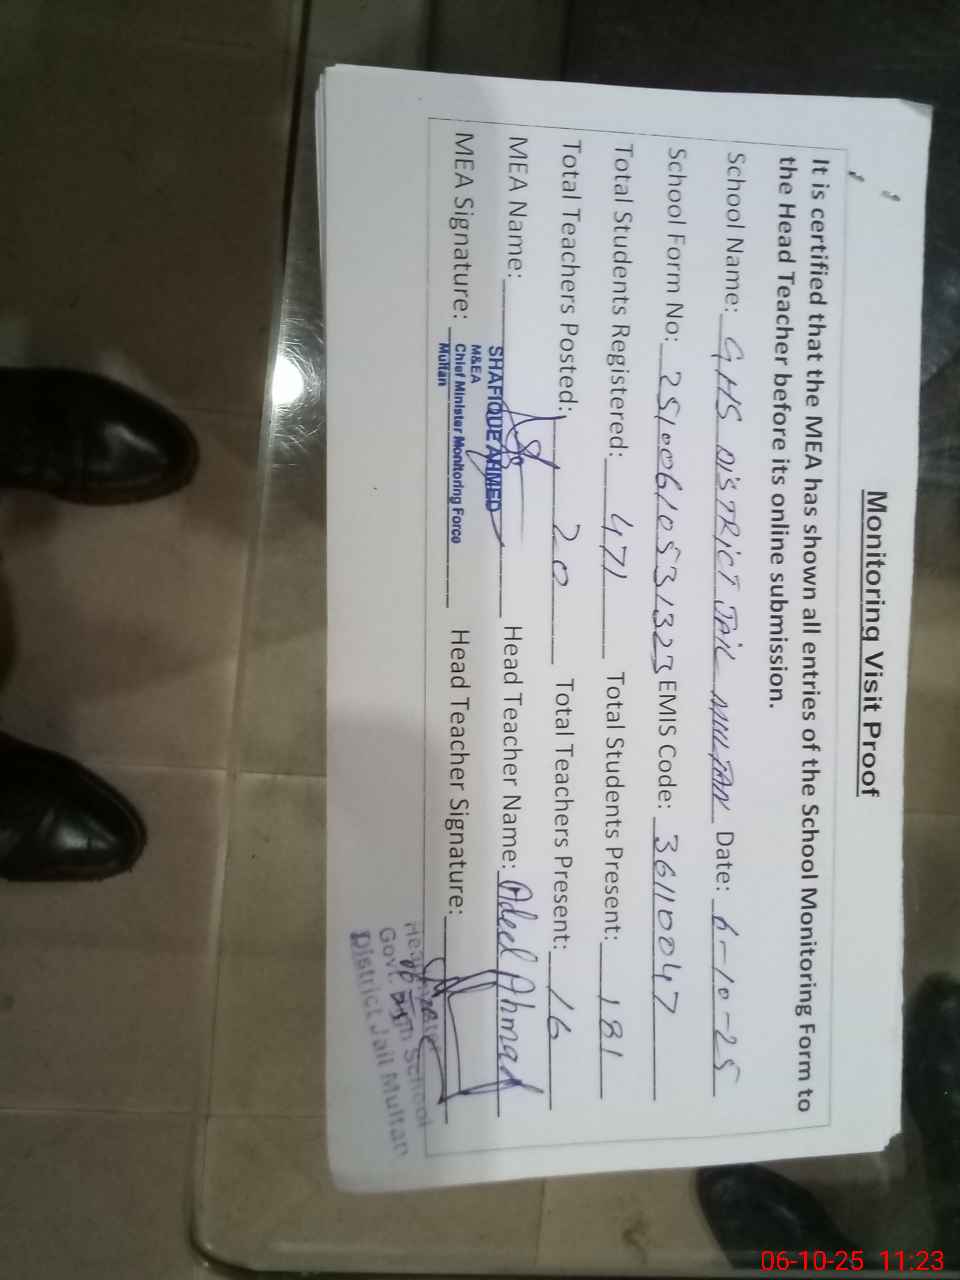 Monitoring Visit Proof
It is certified that the MEA has shown all entries of the School Monitoring Form to
the Head Teacher before its online submission.
School Name: GHS DISTRICT JAIL MULTAN Date: 6-10-25
School Form No: 251006105331323 EMIS Code: 36110047
Total Students Registered: 471 Total Students Present: 181
Total Teachers Posted: 20 Total Teachers Present: 16
MEA Name: Head Teacher Name: Adeel Ahmad
SHAFIQUE AHMED
M&EA
MEA Signature: Chief Minister Monitoring Force Head Teacher Signature:
Multan
Govt. High School
District Jail Multan
06-10-25 11:23